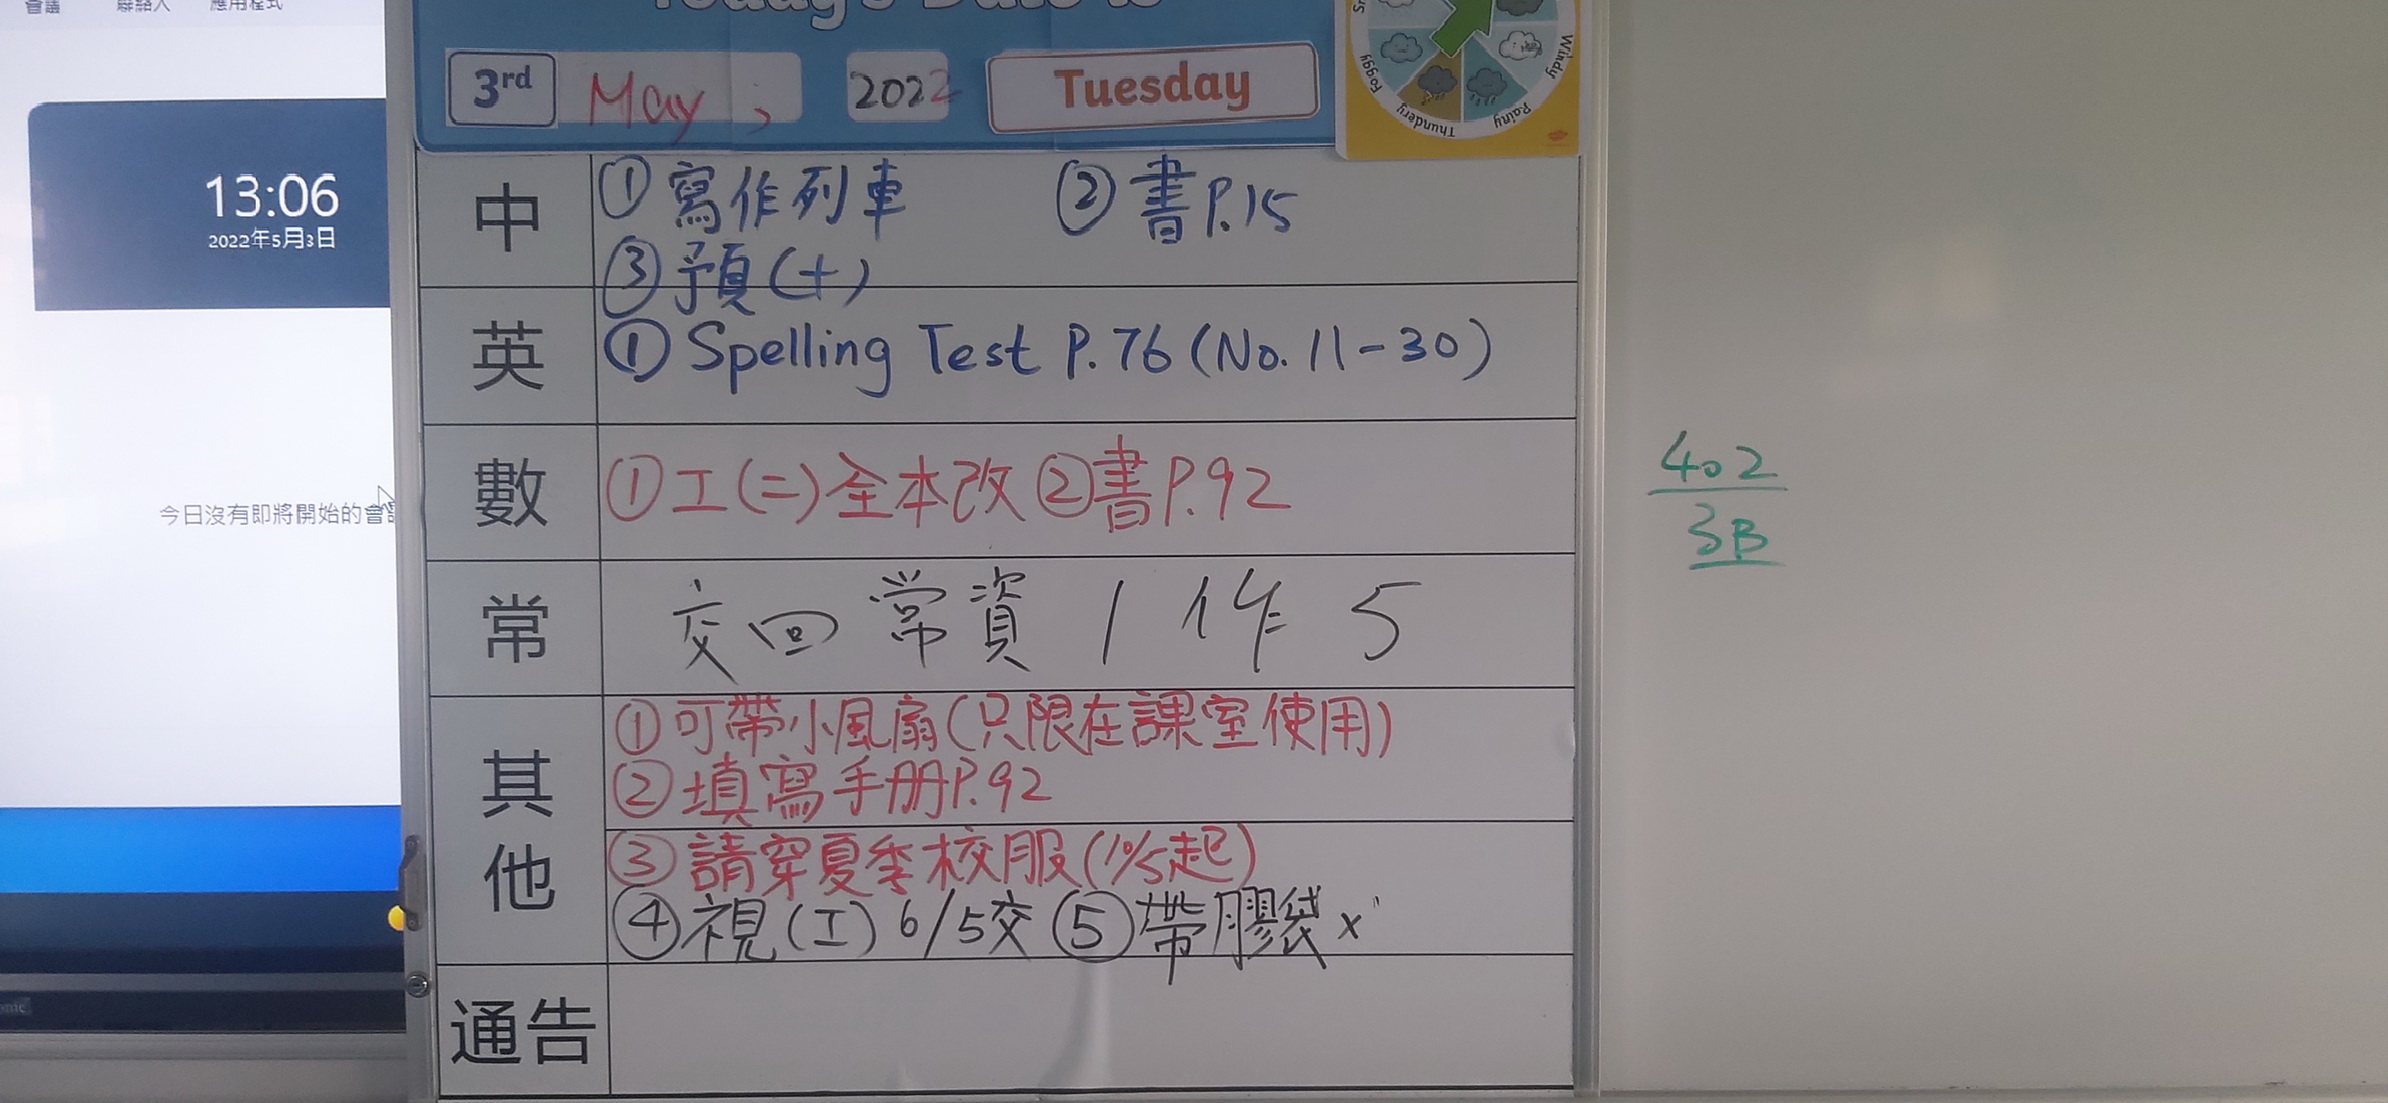 會議 聯絡人 應用程式
Today's Date is
3rd May, 2022 Tuesday
Foggy Thundery Rainy Windy
13:06
2022年5月3日
今日沒有即將開始的會
中 ①寫作列車 ②書P.15
③預(十)
英 ①Spelling Test P.76 (No.11-30)
數 ①工(二)全本改 ②書P.92
常 交回常資 1 作 5
其他 ①可帶小風扇(只限在課室使用)
②填寫手冊P.92
③請穿夏季校服(10/5起)
④視(工) 6/5交 ⑤帶膠袋x1
通告
402
3B